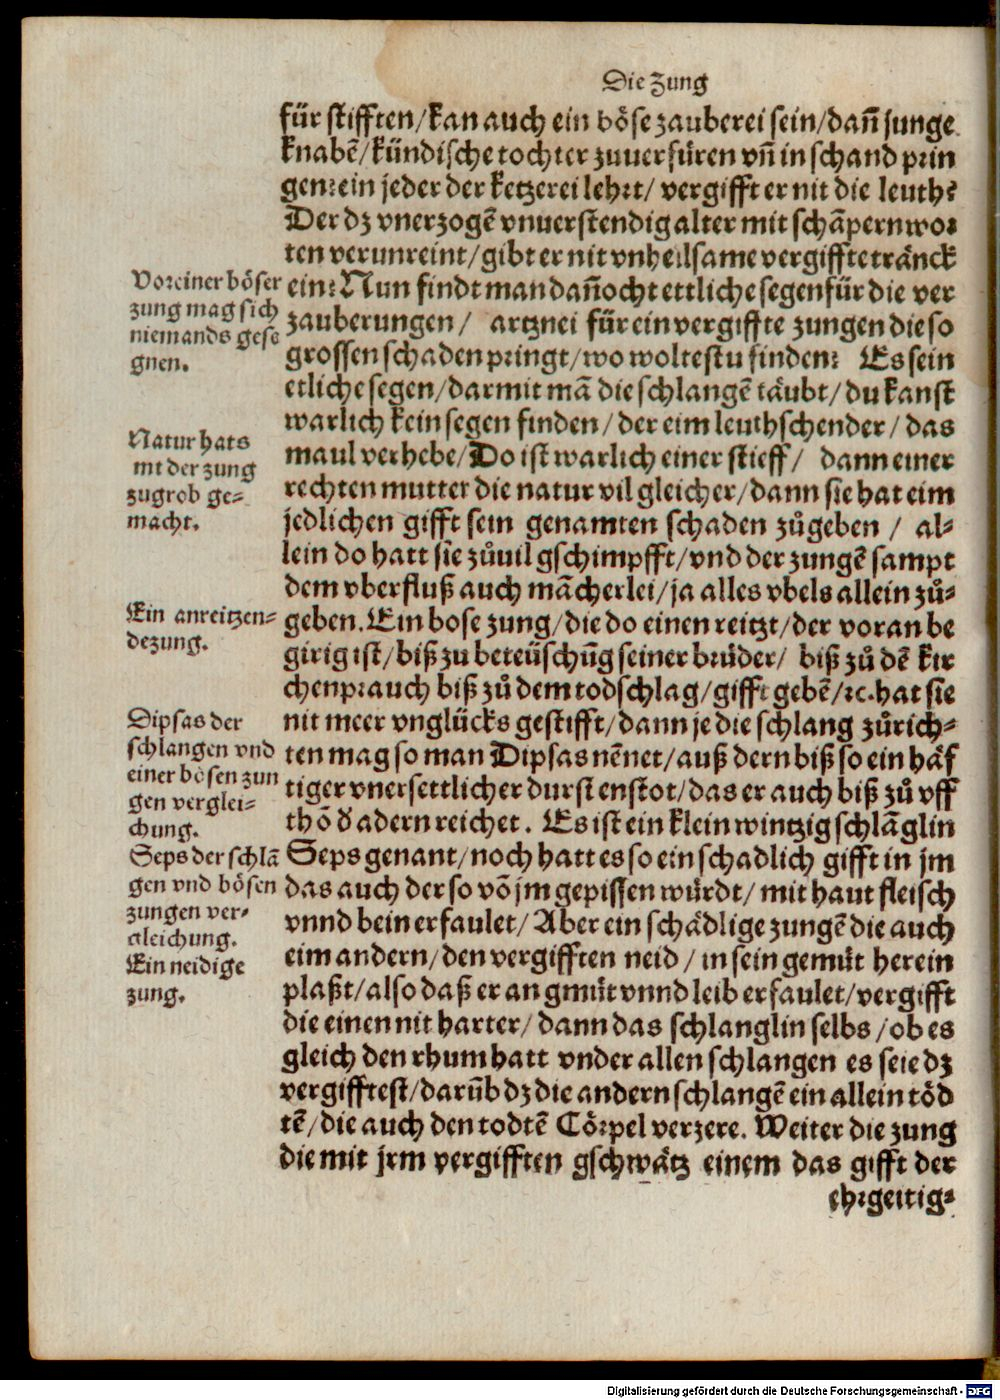 Die Zung
für stifften/kan auch ein böse zauberei sein/dañ junge
knabẽ/kündische tochter zuuerfüren vñ in schand prin
gen?ein jeder der ketzerei lehrt/ vergifft er nit die leuth?
Der dz vnerzogẽ vnuerstendig alter mit schãpern wor
ten verunreint/gibt er nit vnheilsame vergiffte tränck
ein? Nun findt man dañocht ettliche segen für die ver
zauberungen/ artznei für ein vergiffte zungen die so
grossen schaden pringt/wo woltestu finden? Es sein
etliche segen/darmit mã die schlangẽ täubt/du kanst
warlich kein segen finden/der eim leuthschender/das
maul verhebe/Do ist warlich einer stieff/ dann einer
rechten mutter die natur vil gleicher/dann sie hat eim
jedlichen gifft sein genamten schaden zůgeben/ al⸗
lein do hatt sie zůuil gschimpfft/vnd der zungẽ sampt
dem vberfluß auch mãcherlei/ja alles vbels allein zů⸗
geben. Ein bose zung/die do einen reitzt/der voran be
girig ist/biß zu beteüschũg seiner brüder/ biß zů dẽ kir
chenprauch biß zů dem todschlag/gifft gebẽ/ꝛc. hat sie
nit meer vnglücks gestifft/dann je die schlang zůrich⸗
ten mag so man Dipsas nẽnet/auß dern biß so ein häf
tiger vnersettlicher durst enstot/das er auch biß zů vff
thõ d̓ adern reichet. Es ist ein klein wintzig schlãglin
Seps genant/noch hatt es so ein schadlich gifft in jm
das auch der so võ jm gepissen würdt/mit haut fleisch
vnnd bein erfaulet/Aber ein schädlige zungẽ die auch
eim andern/den vergifften neid/in sein gemüt herein
plaßt/also daß er an gmüt vnnd leib erfaulet/vergifft
die einen nit harter/dann das schlanglin selbs/ob es
gleich den rhum hatt vnder allen schlangen es seie dz
vergifftest/darũb dz die andern schlangẽ ein allein töd
tẽ/die auch den todtẽ Cörpel verzere. Weiter die zung
die mit jrm vergifften gschwätz einem das gifft der
ehrgeitig⸗
Vor einer böser
zung mag sich
niemands gese
gnen.
Natur hats
mt der zung
zugrob ge⸗
macht.
Ein anreitzen⸗
de zung.
Dipsas der
schlangen vnd
einer bösen zun
gen verglei⸗
chung.
Seps der schlã
gen vnd bösen
zungen ver⸗
gleichung.
Ein neidige
zung.
Digitalisierung gefördert durch die Deutsche Forschungsgemeinschaft - DFG